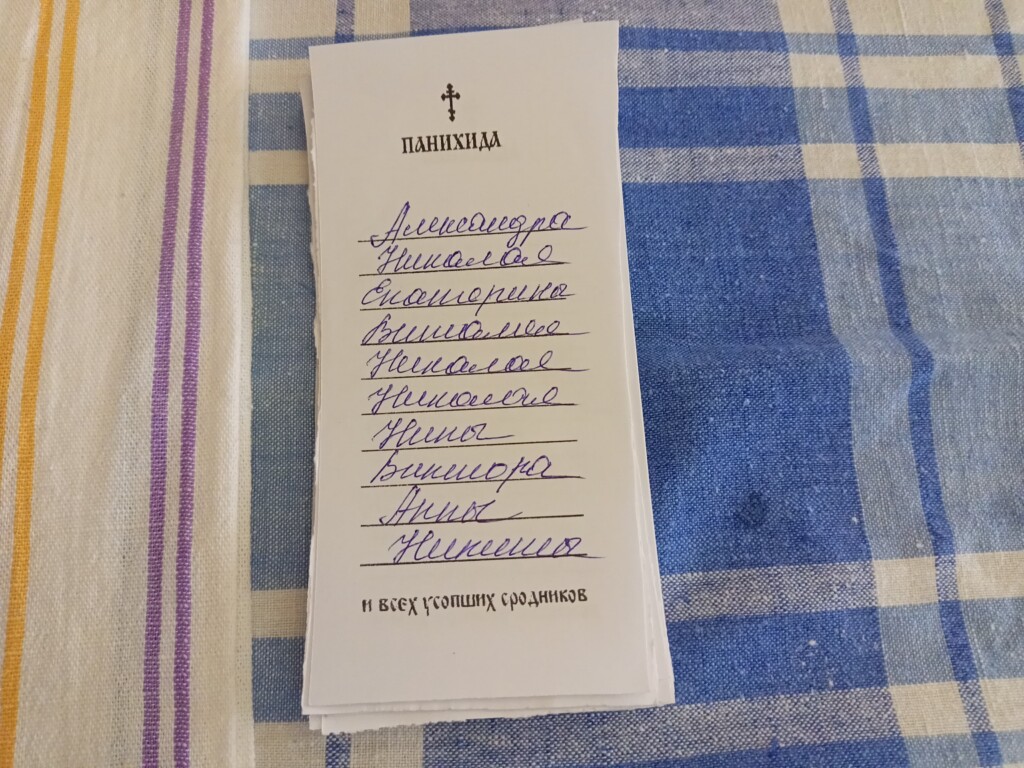 ПАНИХИДА
Александра
Николая
Екатерины
Виталия
Николая
Николая
Нины
Виктора
Анны
Никиты
и всех усопших сродников